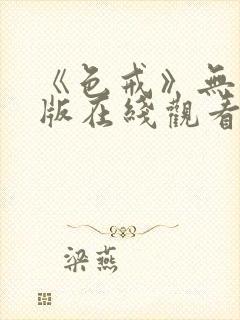 《色戒》無
版在綫觀看
梁燕